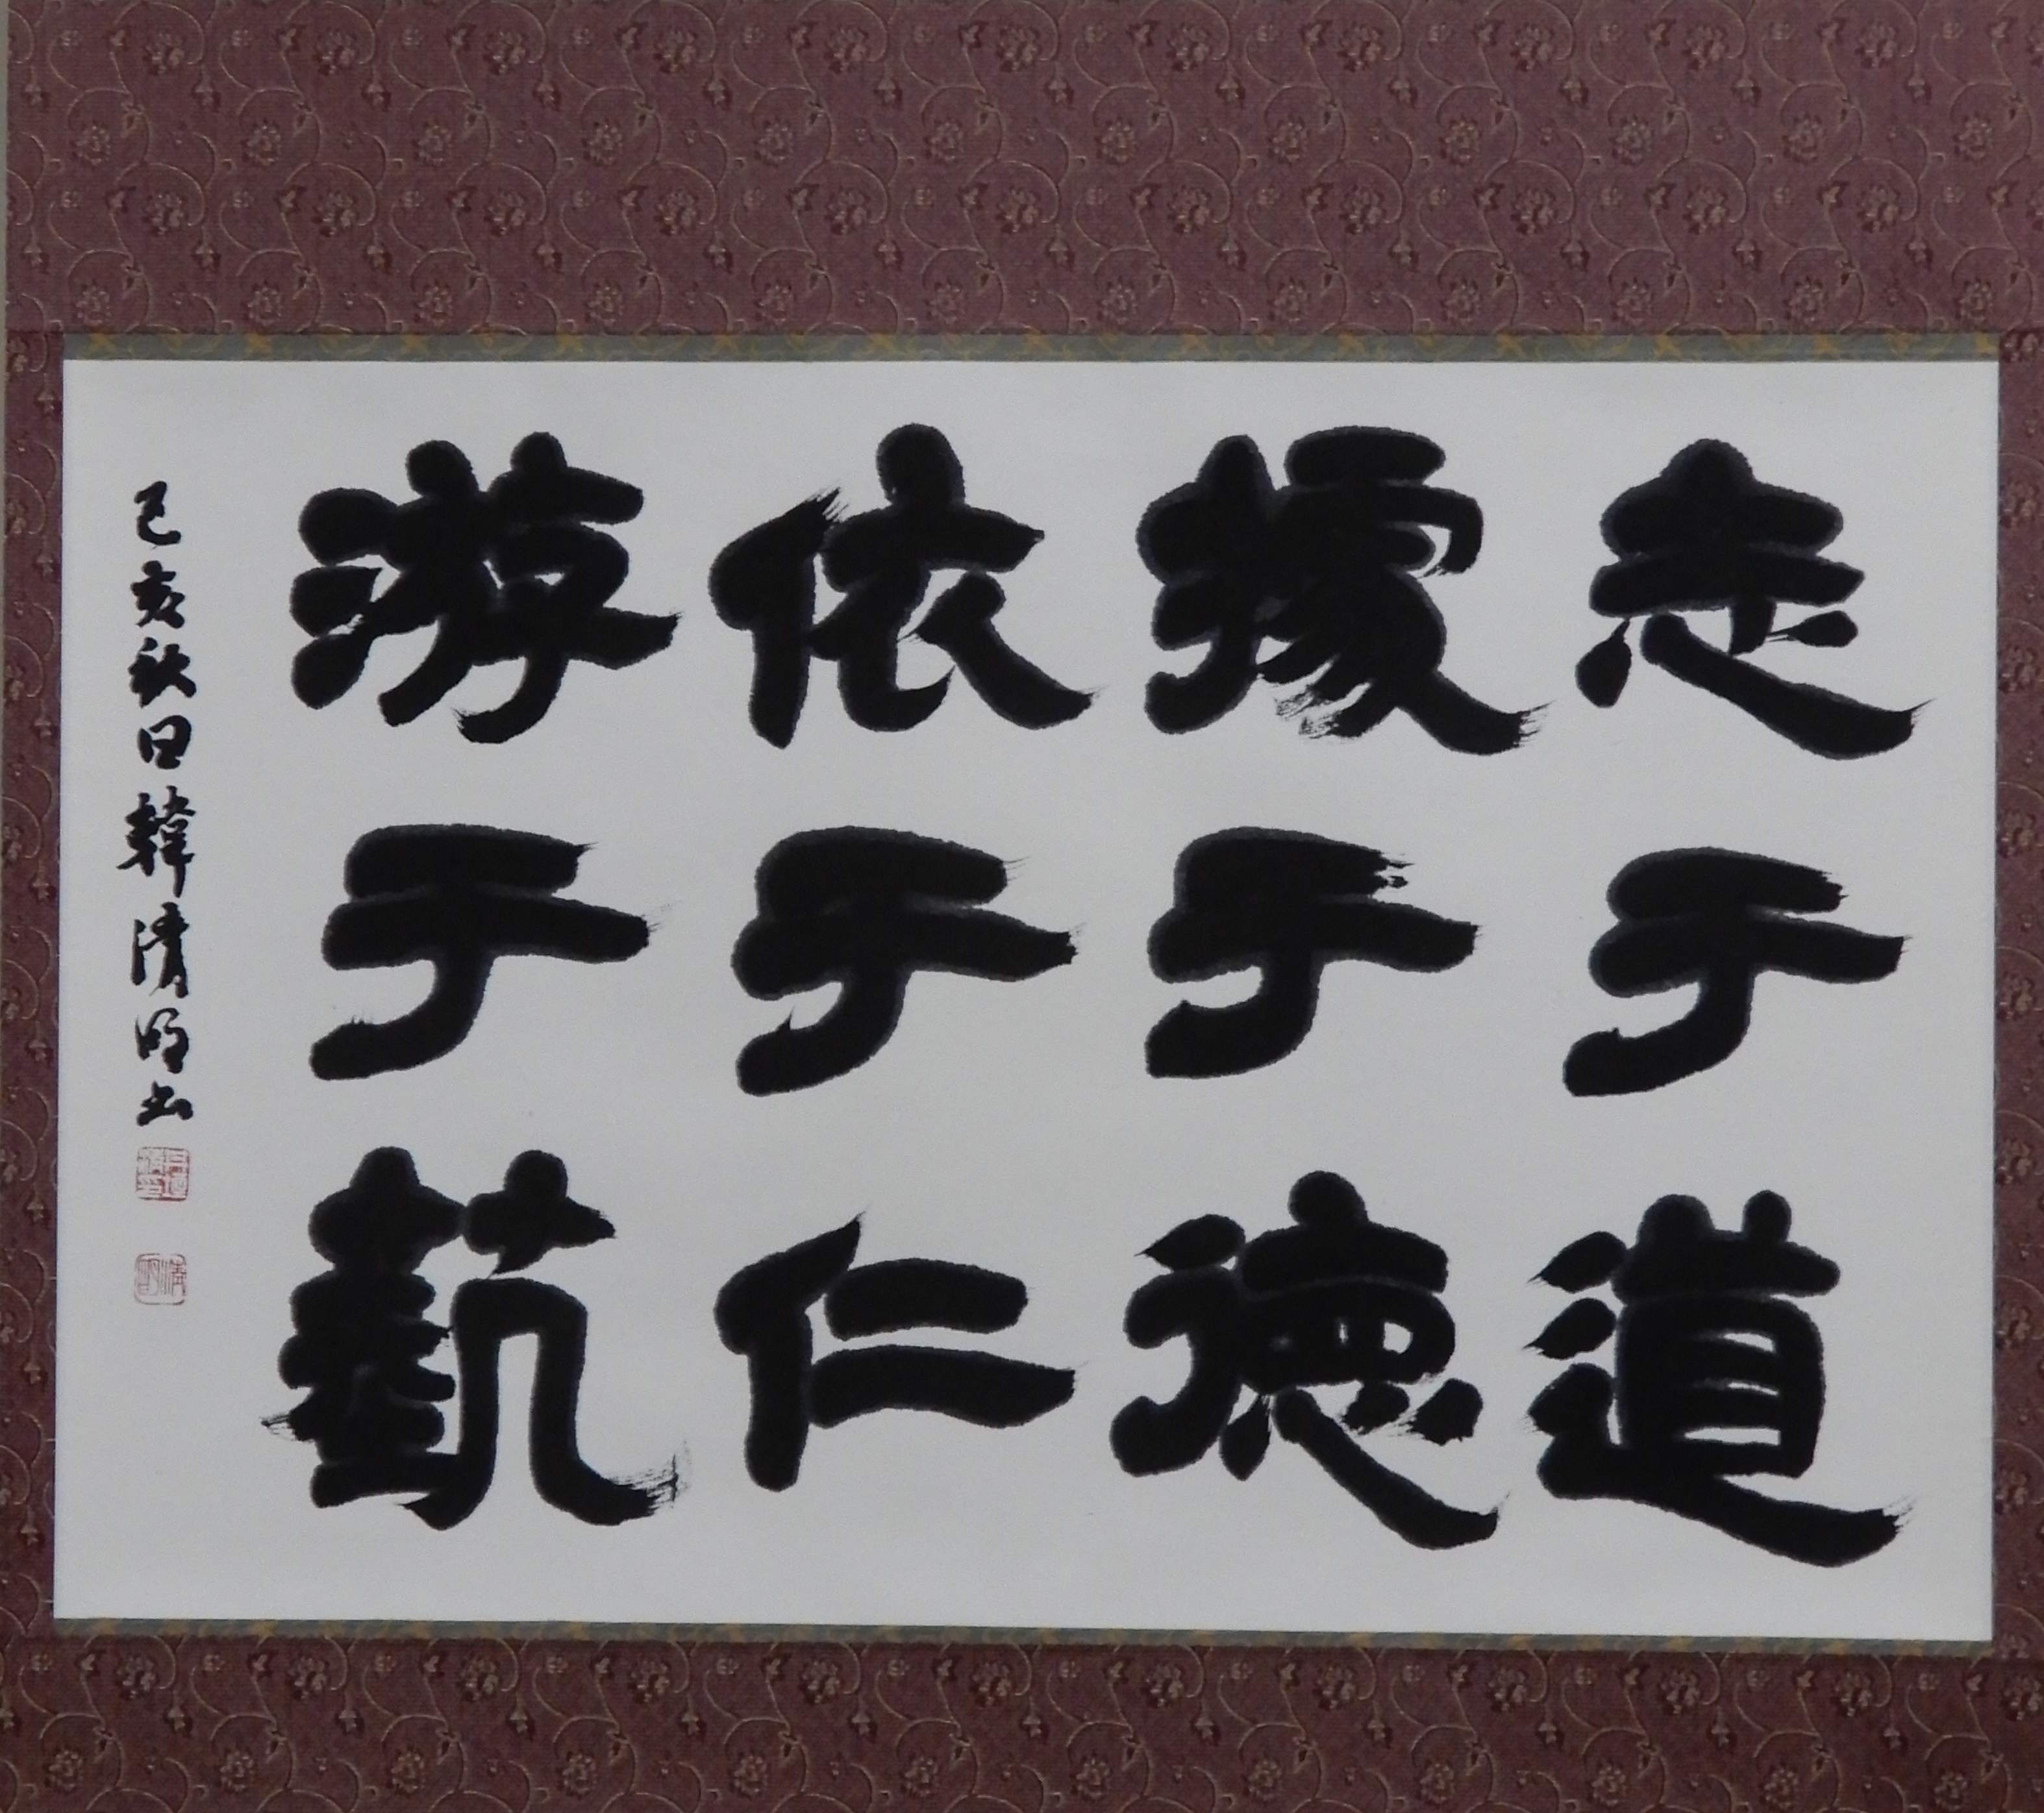 志于道
據于德
依于仁
游于藝
己亥秋日韓清明书